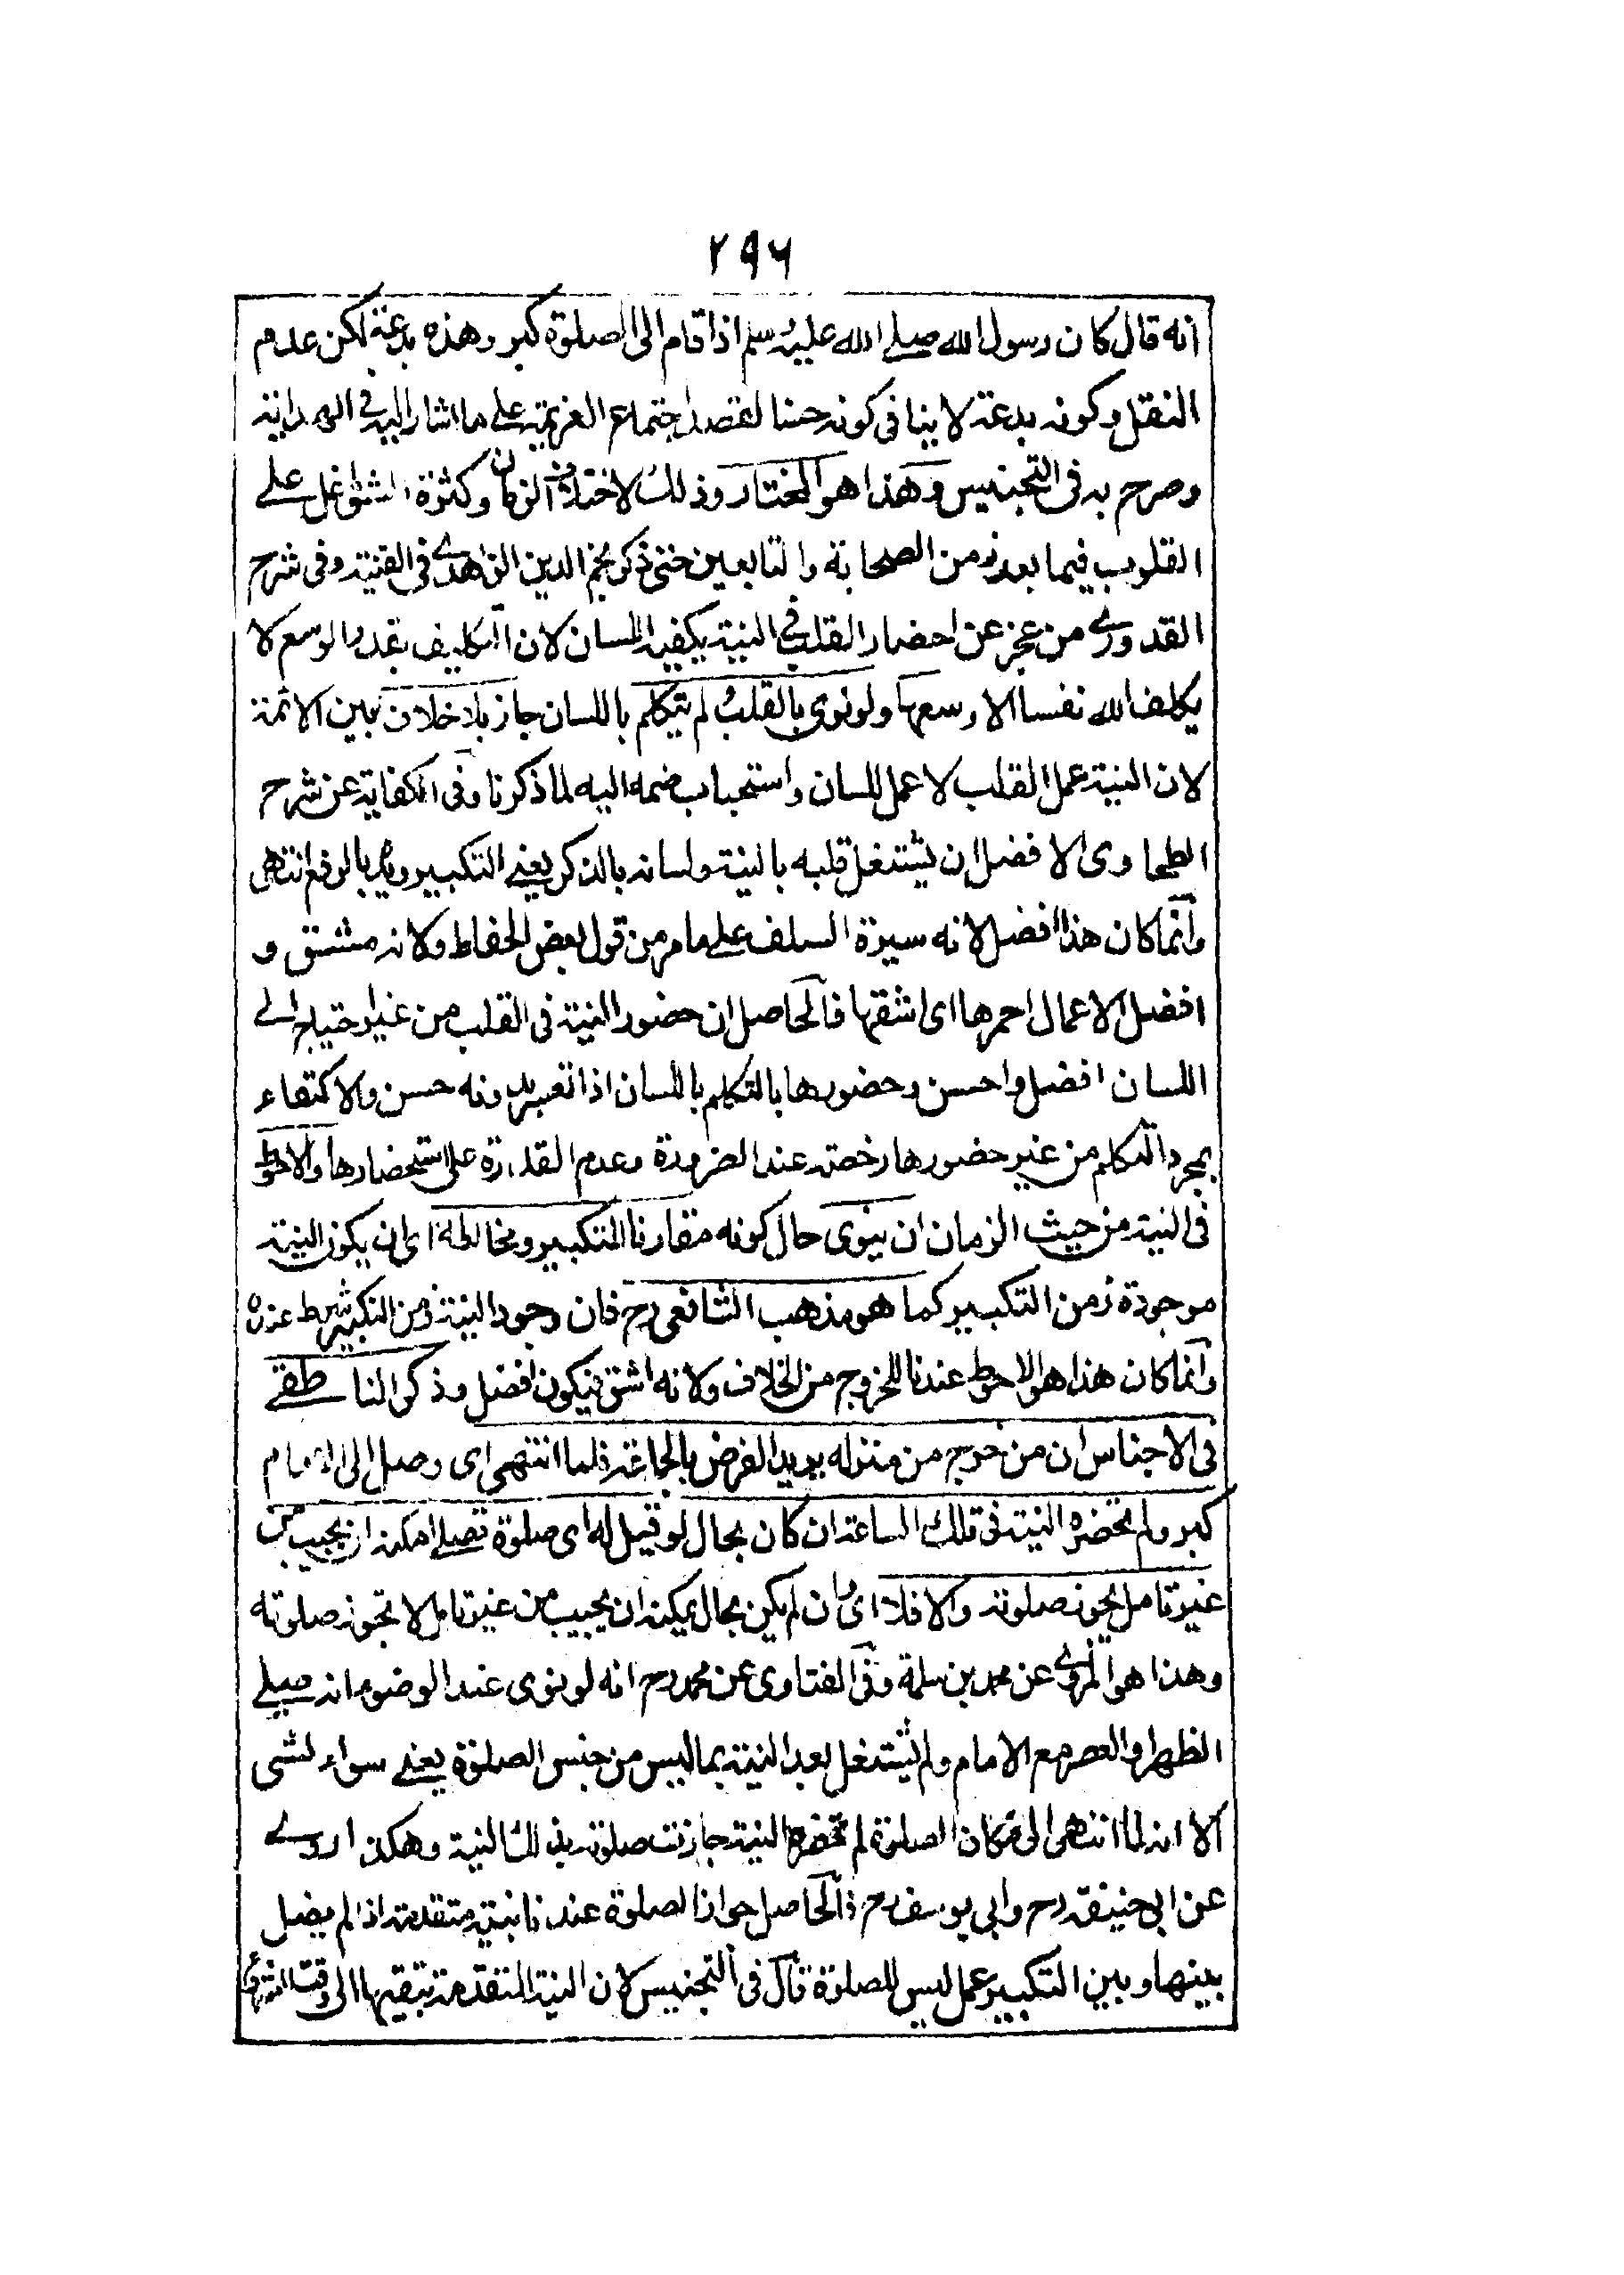 ٢٩٦
انه قال كان رسول الله صلے الله عليه وسلم اذا قام الى الصلوة كبر وهذه بدعة لكن عدم
النقل وكونه بدعة لا ينافى كونه حسنا لقصد اجتماع العزيمة علے ما اشار اليه فى الهداية
وصرح به فى التجنيس وهذا هو المختار وذلك لاختلاف الزمان وكثرة الشواغل علے
القلوب فيما بعد زمن الصحابة والتابعين حتى ذكر نجم الدين الزاهدے فى القنية وفى شرح
القدورے من عجز عن احضار القلب فى النية يكفيه اللسان لان التكليف بقدر الوسع لا
يكلف الله نفسا الا وسعها ولو نوى بالقلب لم يتكلم باللسان جاز بلا خلاف بين الائمة
لان النية عمل القلب لا عمل للسان واستحباب ضمه اليه لما ذكرنا وفى الكفاية عن شرح
الطحاوى الافضل ان يشتغل قلبه بالنية ولسانه بالذكر يعنے التكبير ويده بالرفع انتهى
وانما كان هذا افضل لانه سيرة السلف علے ما مر من قول بعض الحفاظ ولانه مشتق و
افضل الاعمال احمزها اى اشقها فالحاصل ان حضور النية فى القلب من غير احتياج الے
اللسان افضل واحسن وحضورها بالتكلم باللسان اذا تعسر بدونه حسن والاكتفاء
بمجرد التكلم من غير حضورها رخصة عند الضرورة وعدم القدرة على استحضارها والاحوط
فى النية من حيث الزمان ان ينوى حال كونه مقارنا للتكبير ومخالطا له اى ان يكون النية
موجودة زمن التكبير كما هو مذهب الشافعى رح فان وجود النية زمن التكبير شرط عنده
وانما كان هذا هو الاحوط عندنا للخروج من الخلاف ولانه اشق فيكون افضل وذكر الناطقے
فى الاجناس ان من خرج من منزله يريد الفرض بالجماعة فلما انتهى اى وصل الى الامام
كبر ولم تحضره النية فى تلك الساعة ان كان بحال لو قيل له اى صلوة تصلے امكنه ان يجيب من
غير تامل يجوز صلوته والا فلا اى وان لم يكن بحال يمكنه ان يجيب من غير تامل لا تجوز صلوته
وهذا هو المروے عن محمد بن سلمة وفى الفتاوى عن محمد رح انه لو نوى عند الوضوء انه يصلے
الظهر او العصر مع الامام ولم يشتغل بعد النية بما ليس من جنس الصلوة يعنے سواء لشى
الا انه لما انتهى الى مكان الصلوة لم تحضره النية جازت صلوته بذلك النية وهكذا روے
عن ابى حنيفة رح وابى يوسف رح فالحاصل جواز الصلوة عندنا بنية متقدمة اذا لم يفصل
بينها وبين التكبير عمل ليس للصلوة قال فى التجنيس لان النية المتقدمة تبقيها الى وقت الشروع